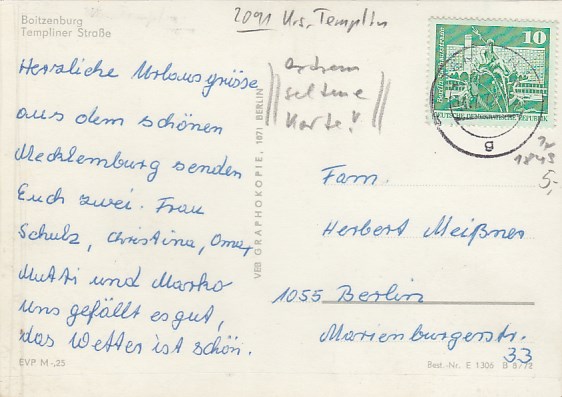 Boitzenburg
Templiner Straße
2091 Krs. Templin
extrem
seltene
Karte!
Herzliche Urlausgrüsse
aus dem schönen
Mecklemburg senden
Euch zwei. Frau
Schulz, Christina, Oma,
Mutti und Marko
uns gefällt es gut,
das Wetter ist schön.
EVP M -,25
VEB GRAPHOKOPIE, 1071 BERLIN
10
DEUTSCHE DEMOKRATISCHE REPUBLIK
g
1845
5,-
Fam.
Herbert Meißner
1055 Berlin
Marienburgerstr.
33
Best.-Nr. E 1306 B 8/72